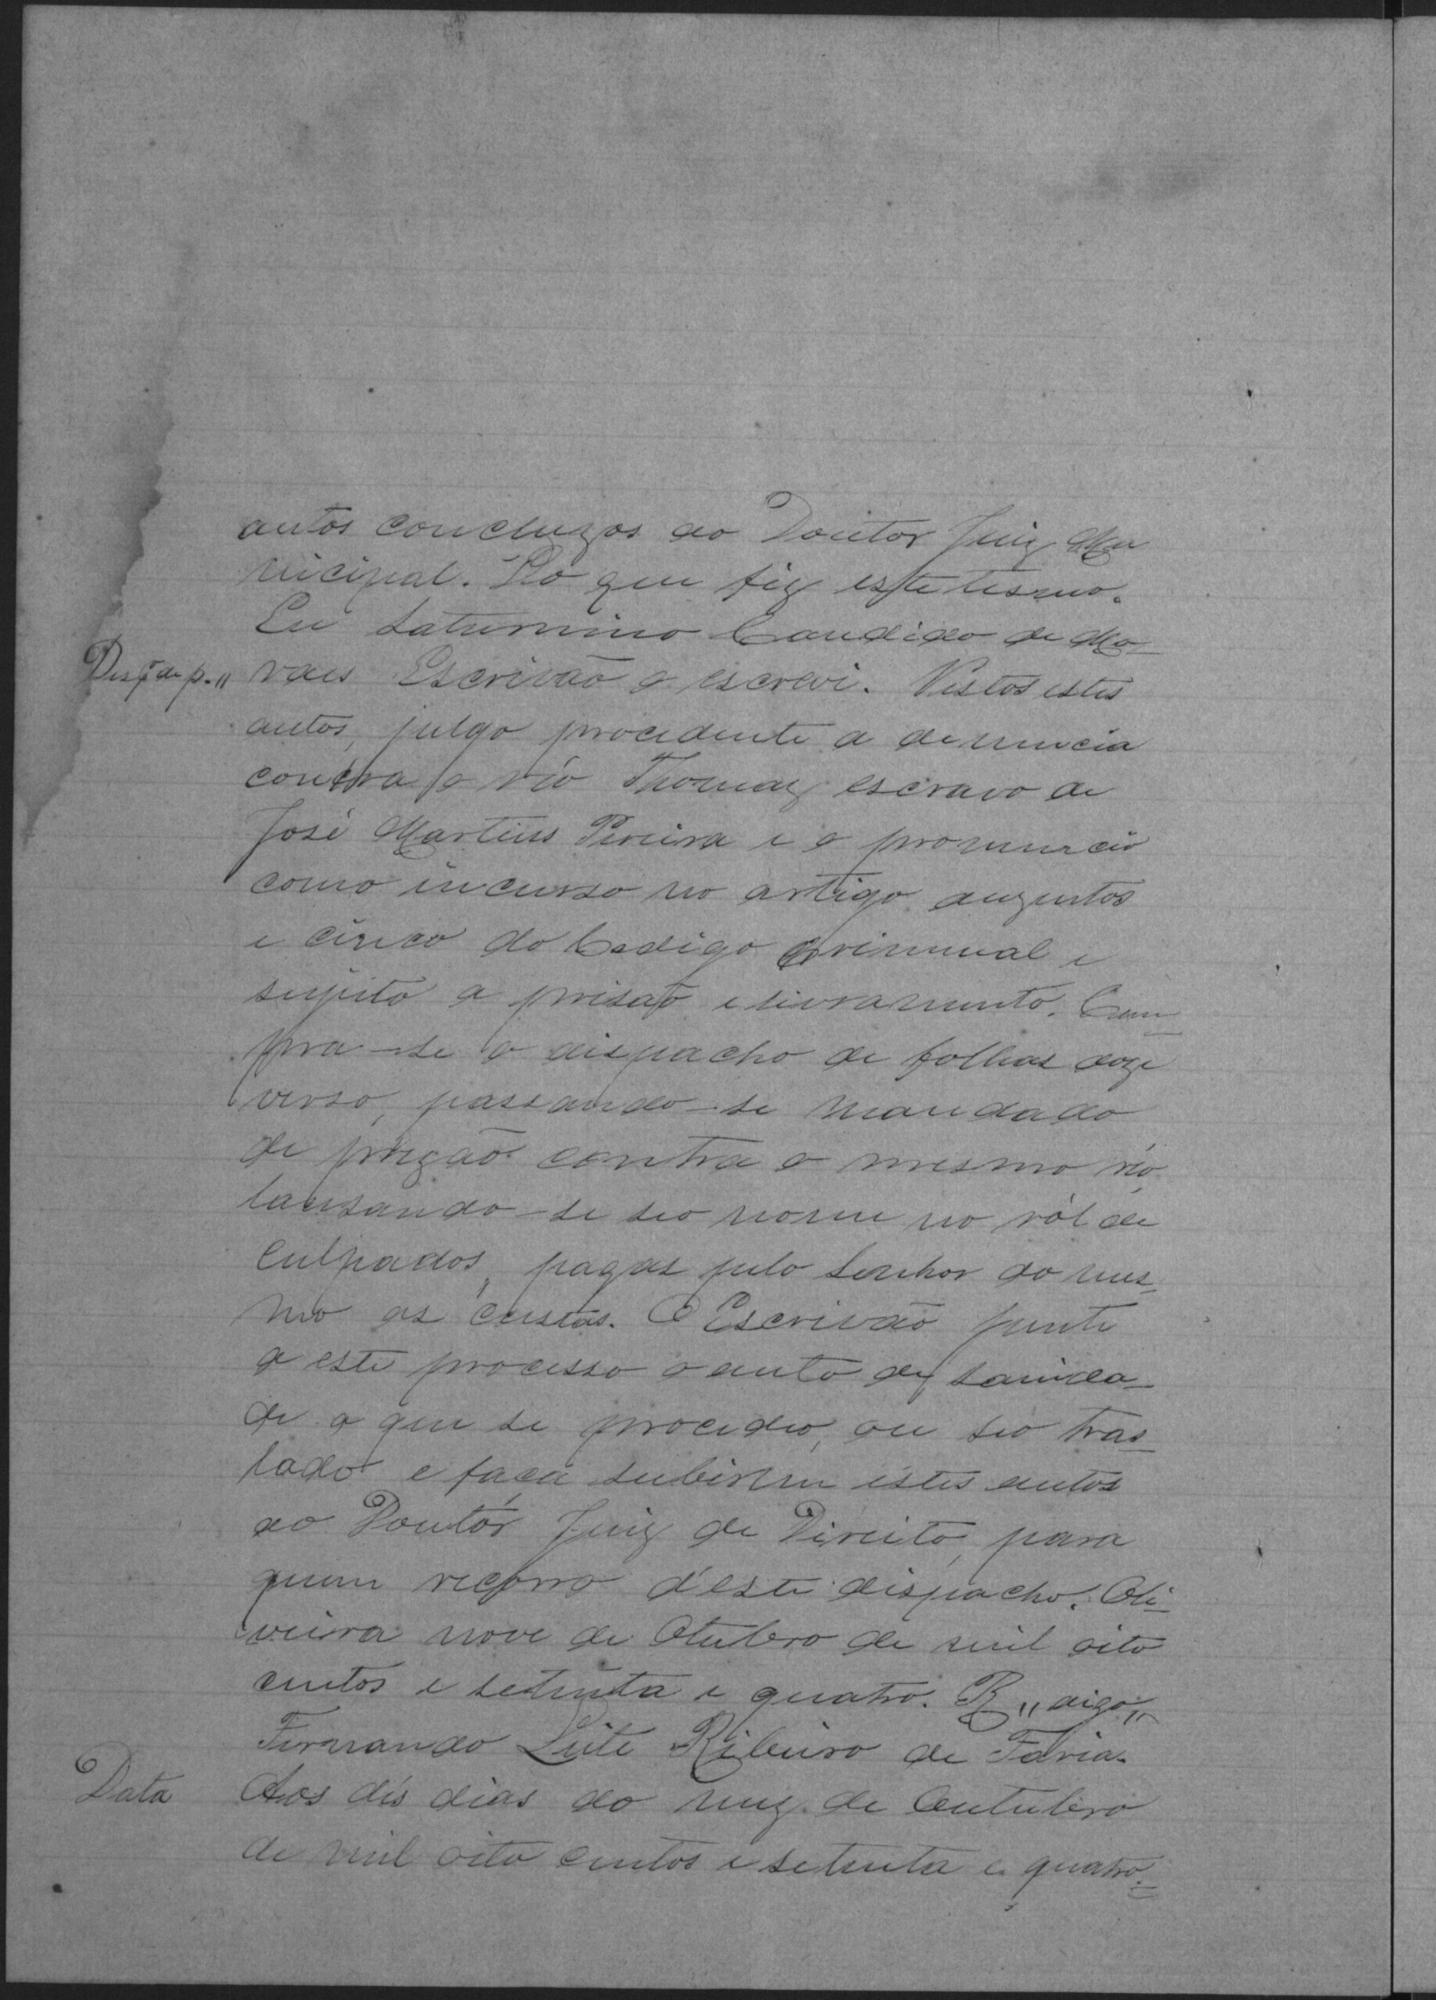 autos concluzos ao Doutor Juiz Mu
nicipal. Do que fiz este termo.
Eu Saturnino Candido de Mo-
Desp. de p.,, raes Escrivão o escrevi. Vistos estes
autos, julgo procedente a denuncia
contra o réo Thomaz escravo de
José Martins Pereira e o pronuncio
como incurso no artigo duzentos
e cinco do Codigo Criminal e
sujeito a prisão e livramento. Cum-
pra-se o despacho de folhas doze
verso, passando-se mandado
de prizão contra o mesmo réo,
lansando-se seo nome no ról de
culpados, pagas pelo Senhor do mes-
mo as custas. O Escrivão junte
a este processo o auto de sanida-
de a que se procedeo, ou seo tras-
lado e faça subirem estes autos
ao Doutor Juiz de Direito, para
quem recorro d'este despacho. Oli-
veira nove de Otubro de mil oito
centos e setenta e quatro. R,, digo,,
Fernando Leite Ribeiro de Faria.
Data Aos dés dias do mez de Outubro
de mil oito centos e setenta e quatro.=